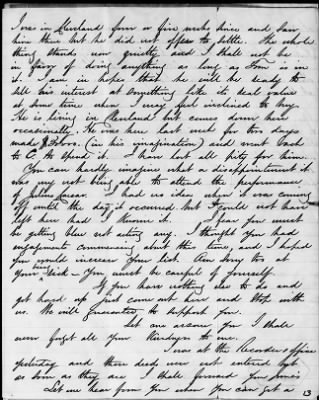 I was in Cleveland four or five weeks since and saw
him then but he did not offer to settle. The whole
thing stands now quietly and I shall not be
in favor of doing anything as long as Tom is in
it. I am in hopes that he will be ready to
sell his interest at something like its real value
at some time when I may feel inclined to buy.
He is living in Cleveland but comes down here
occasionally. He was here last week for two days
made (in his imagination) and went back
to C. to spend it. I have lost all pity for him.
You can hardly imagine what a disappointment it
was my not being able to attend the performance
of Julius Caesar. I had no idea when it was coming
off until the day it occurred but I could not have
left here had I known it. I fear you must
be getting blue not acting any. I thought you had
engagements commencing about this time, and I hoped
you would increase your list. Am sorry to
your being sick — You must be careful of yourself.
If you have nothing else to do and
get hard up just come out here and stop with
us. We will guarantee to support you.
Let me assure you I shall
never forget all your kindness to me.
I was at the Recorders office
yesterday and these deeds were not entered but
as soon as they are I shall forward you
Let me hear from you when you can get a
13